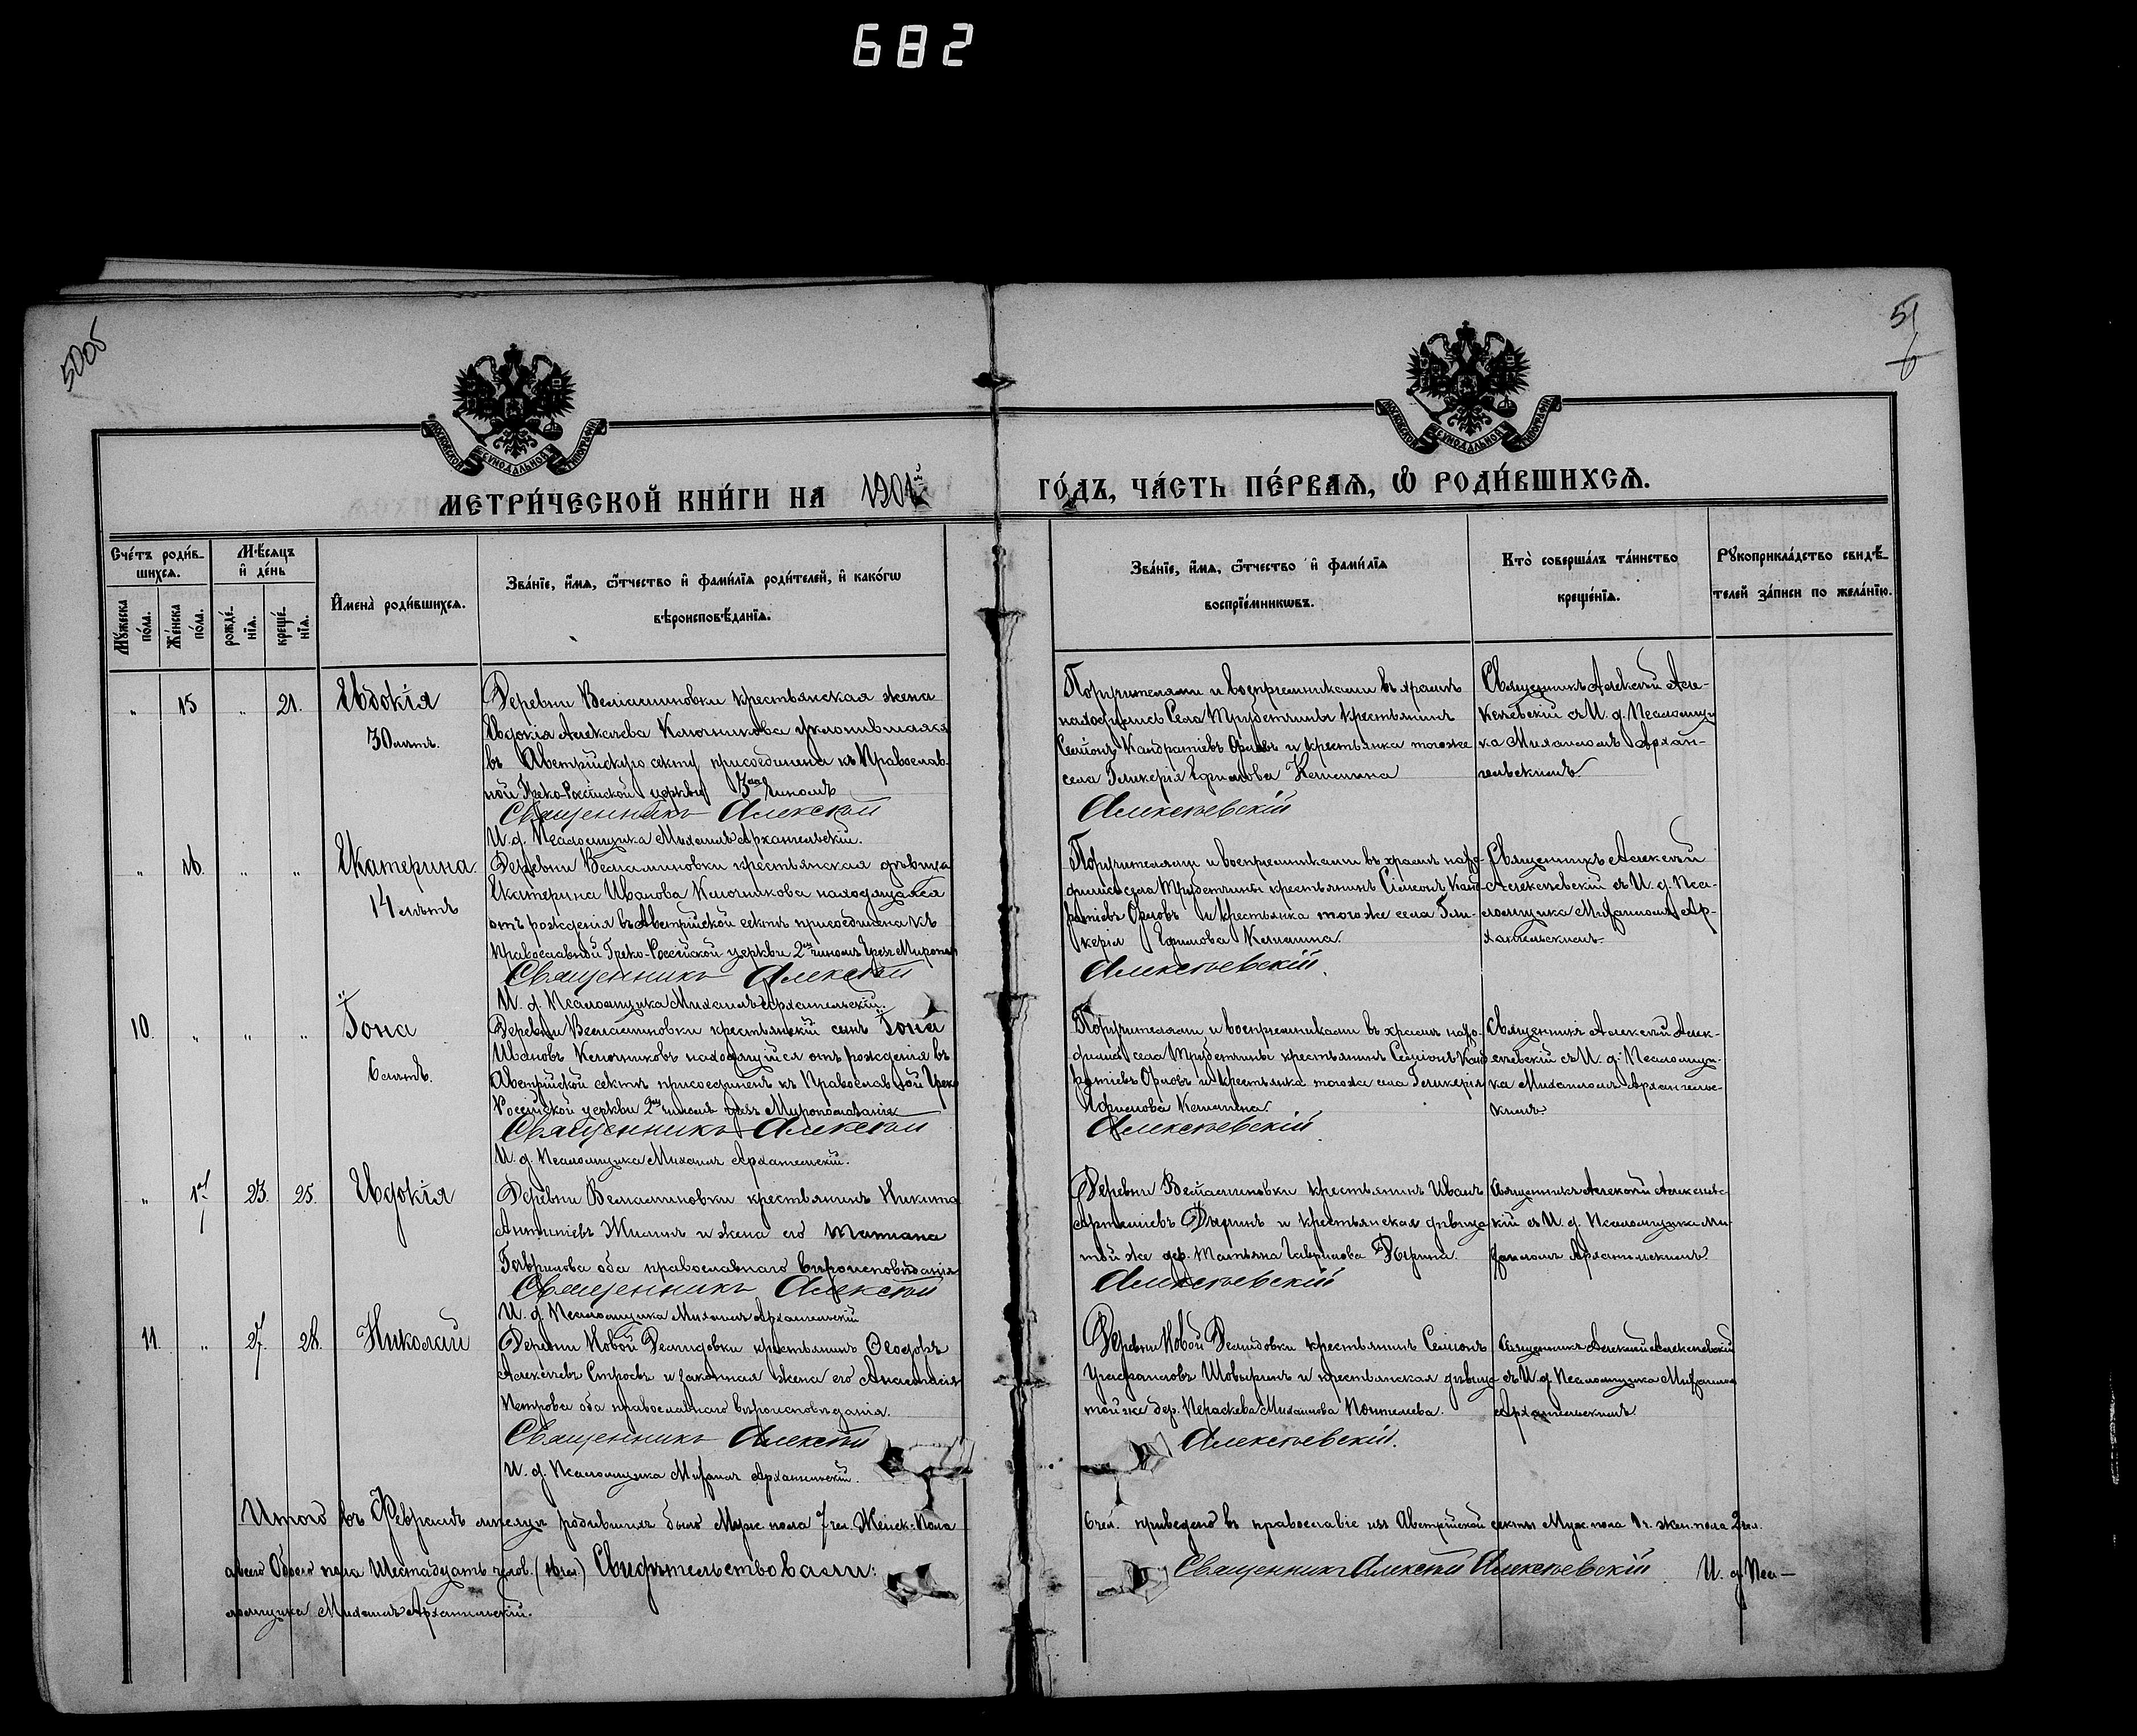 682
50об
51
6
МОСКОВСКОЙ СѴНОДАЛЬНОЙ ТИПОГРАФІИ
МОСКОВСКОЙ СѴНОДАЛЬНОЙ ТИПОГРАФІИ
МЕТРИ́ЧЕСКОЙ КНИ́ГИ НА 1901й ГО́ДЪ, ЧА́СТЬ ПЕ́РВАѦ, Ѿ РОДИ́ВШИХСѦ.
Сче́тъ роди́в-
шихсѧ.
Мѣ́сѧцъ
и҆ де́нь
И҆мена̀ роди́вшихсѧ.
Зва́нїе, и҆́мѧ, ѻ҆́тчество и҆ фами́лїѧ роди́телей, и҆ како́гѡ
вѣроисповѣ́данїѧ.
Мꙋ́жеска по́ла.
Же́нска по́ла.
рожде́нїѧ.
креще́нїѧ.
Зва́нїе, и҆́мѧ, ѻ҆́тчество и҆ фами́лїѧ
воспрїе́мникѡвъ.
Кто̀ соверша́лъ та́инство
креще́нїѧ.
Рꙋкоприкла́дство свидѣ́-
телей за́писи по жела́нїю.
" 15 " 21. Евдокія
30 лѣтъ.
Деревни Веніаминовки крестьянская жена
Евдокія Алексѣева Ключникова уклонившаяся
въ Австрійскую секту присоединена къ Православ-
ной Греко-Россійской церкви 3мъ чиномъ
Священникъ Алексѣй
И. д. Псаломщика Михаилъ Архангельскій.
Поручителями и воспріемниками въ храмѣ
находились Села Трубетчины крестьянинъ
Семіонъ Кандратіевъ Орловъ и крестьянка тогоже
села Гликерія Ефимова
Алексѣевскій
Священникъ Алексѣй Але-
ксѣевскій съ И. д. Псаломщи
ка Михаиломъ Архан-
гельскимъ.
" 16. " " Екатерина.
14 лѣтъ
Деревни Веніаминовки крестьянская дѣвица
Екатерина Иванова Ключникова находящаяся
отъ рожденія въ Австрійской сектѣ присоединена къ
Православной Греко-Россійской церкви 2мъ чиномъ чрезъ Миропом
Священникъ Алексѣй
И. д. Псаломщика Михаилъ Архангельскій.
Поручителями и воспріемниками въ храмѣ нахо-
дились села Трубетчины крестьянинъ Сімеонъ Кан-
дратіевъ Орловъ и крестьянка того же села Гли-
керія Ефимова
Алексѣевскій.
Священникъ Алексѣй
Алексѣевскій съ И. д. Пса-
ломщика Михаиломъ Ар-
хангельскимъ.
10. " " " Іона
6 лѣтъ.
Деревни Веніаминовки крестьянскій сынъ Іона
Ивановъ Ключниковъ находящійся отъ рожденія въ
Австрійской сектѣ присоединенъ къ Православной Греко
Россійской церкви 2мъ чиномъ чрезъ Муропомазаніе
Священникъ Алексѣй
И. д. Псаломщика Михаилъ Архангельскій.
Поручителями и воспріемниками въ храмѣ нахо-
дились села Трубетчины крестьянинъ Семіонъ Кан
дратіевъ Орловъ и крестьянка тогоже села Гликерія
Ефимова
Алексѣевскій
Священникъ Алексѣй Алек-
сѣевскій съ И. д. Псаломщи-
ка Михаиломъ Архангельс-
кимъ
" 17 23. 25. Евдокія
Деревни Веніаминовки крестьянинъ Никита
Антипіевъ Жилинъ и жена его Татіана
Гаврилова оба православнаго вѣроисповѣданія
Священникъ Алексѣй
И. д. Псаломщика Михаилъ Архангельскій
Деревни Веніаминовки крестьянинъ Иванъ
и крестьянская дѣвица
той же дер. Татьяна Гаврилова
Алексѣевскій
Священникъ Алексѣй Алексѣевс-
кій съ И. д. Псаломщика Ми-
хаиломъ Архангельскимъ.
11. " 27. 28. Николай
Деревни Новой Демидовки крестьянинъ Ѳеодоръ
Алексѣевъ Строевъ и законная жена его Анастасія
Петрова оба православнаго вѣроисповѣданія.
Священникъ Алексѣй
И. д. Псаломщика Михаилъ Архангельскій.
Деревни Новой Демидовки крестьянинъ Семіонъ
и крестьянская дѣвица
той же дер. Параскева Михаилова
Алексѣевскій.
Священникъ Алексѣй Алексѣевскій
съ И. д. Псаломщика Михаиломъ
Архангельскимъ.
Итого въ Февралѣ мѣсяцѣ родившихъ было Муж. пола 7 чел. Женск. пола 6 чел. приведено въ православіе изъ Австрійской секты Муж. пола 1 ч. жен. пола 2 чел.
а всего Обоего пола Шестнадцать челов. (16 чел.) Свидѣтельствовали: Священникъ Алексѣй Алексѣевскій И. д. Пса-
ломщика Михаилъ Архангельскій.